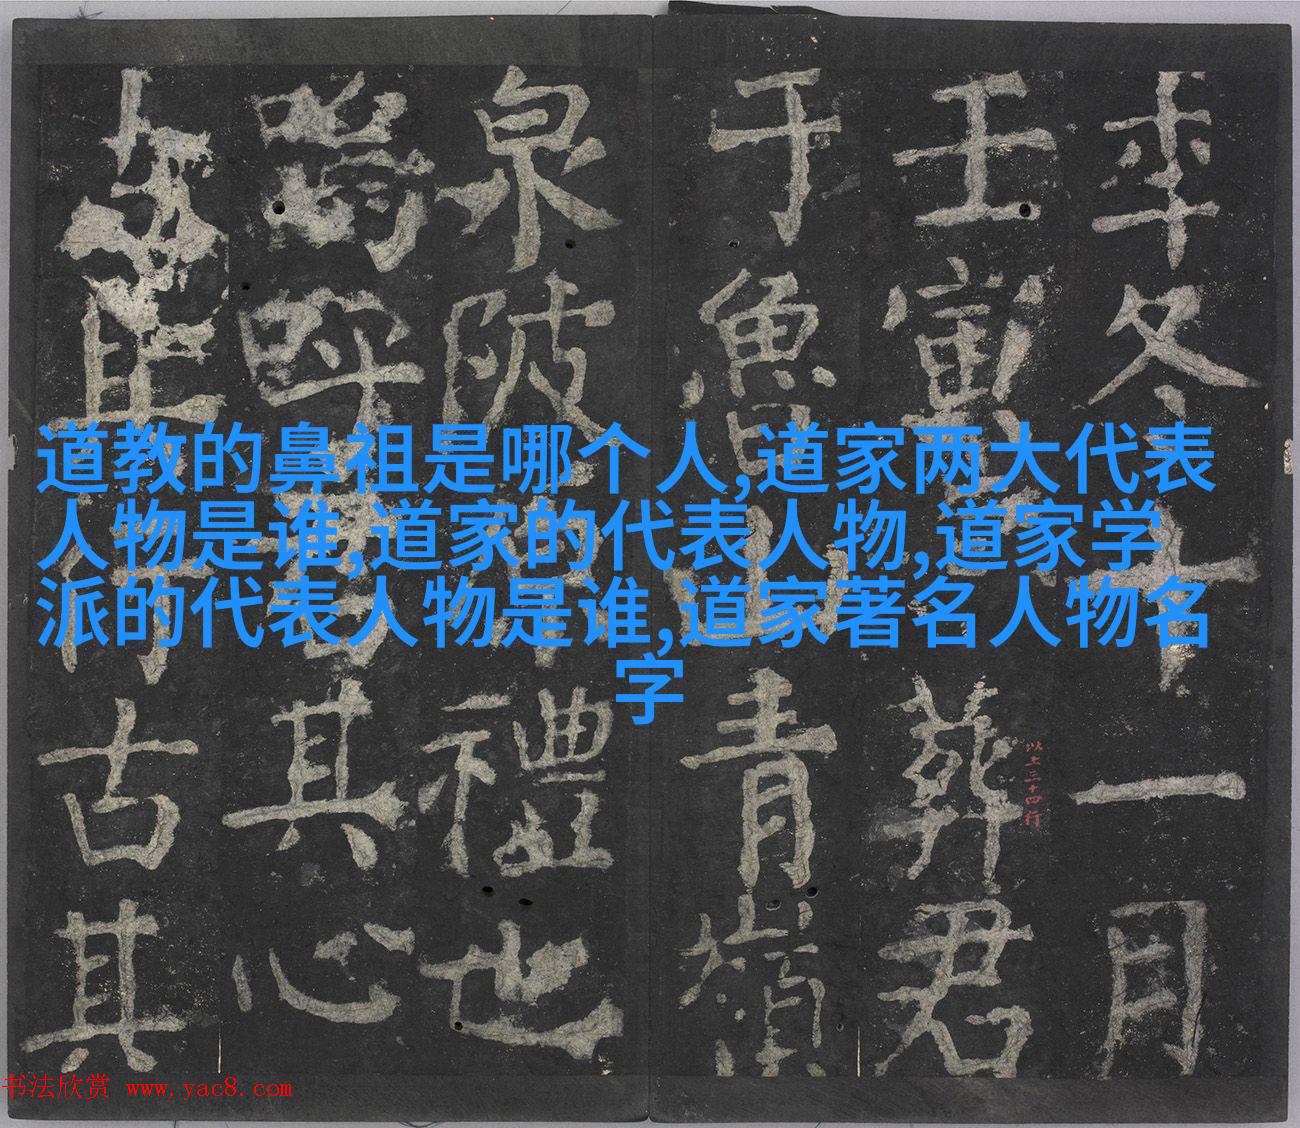 道教的鼻祖是哪个人,道家两大代表
人物是谁,道家的代表人物,道家学
派的代表人物是谁,道家著名人物名
字
年冬十一月
壬寅葬君
于魯山青嶺
泉陂禮也
嗚呼其心
行古其
以上三十四行
书法欣赏 www.yac8.com